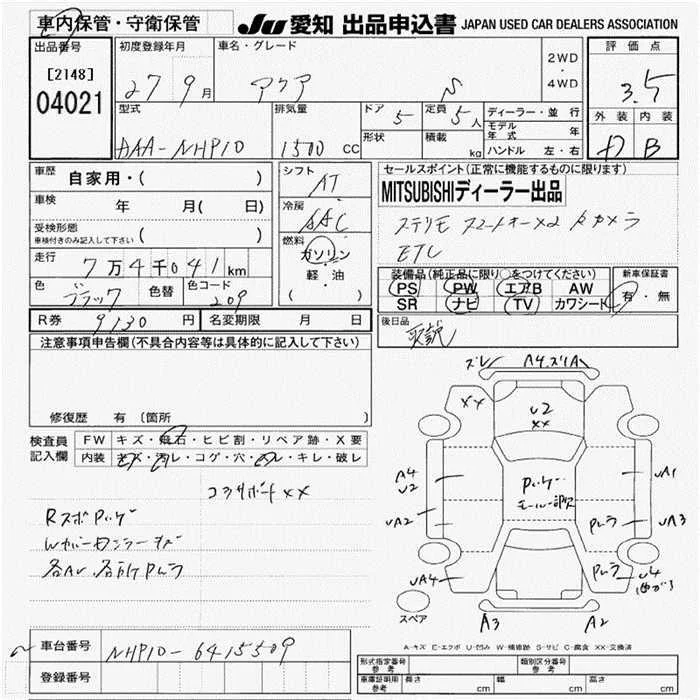 車内保管・守衛保管
JU 愛知 出品申込書 JAPAN USED CAR DEALERS ASSOCIATION
出品番号
[2148]
04021
初度登録年月
27 9月
車名・グレード
アクア S
2WD
・
4WD
評価点
3.5
外装 内装
D B
型式
DAA-NHP10
排気量
1500 cc
ドア 5
形状
定員 5人
積載 kg
ディーラー・並行
モデル年式 年
ハンドル 左・右
車歴 自家用・( )
車検 年 月( 日)
受検形態
車検付きのみ記入して下さい ( )
走行 7万4千041km
色 ブラック 色替 色コード 209
シフト
AT
冷房
AAC
燃料
ガソリン
・
軽・油
( )
セールスポイント(正常に機能するものに限ります)
MITSUBISHIディーラー出品
ステリモ スマートキー×2 Bカメラ
ETC
装備品(純正品に限り○をつけてください)
PS PW エアB AW
SR ナビ TV カワシート
新車保証書
有・無
後日品
R券 9130 円 名変期限 月 日
注意事項申告欄(不具合内容等は具体的に記入して下さい)
修復歴 有 〔箇所
検査員記入欄
FW キズ・飛石・ヒビ割・リペア跡・X要
内装 キズ・汚レ・コゲ・穴・スレ・キレ・破レ
コアサポートXX
各AU.
ズレ A4.ズリA
XX
U2
XX
A4
U2
UA2
UA4
UA1
UA3
U4
A3
A2
スペア
A-キズ E-エクボ U-凹み W-補修跡 S-サビ C-腐食 XX-交換済
車台番号 NHP10-6415509
登録番号
形式指定番号
参考
類別区分番号
参考
車庫証明用
参考
長さ cm 幅 cm 高さ cm